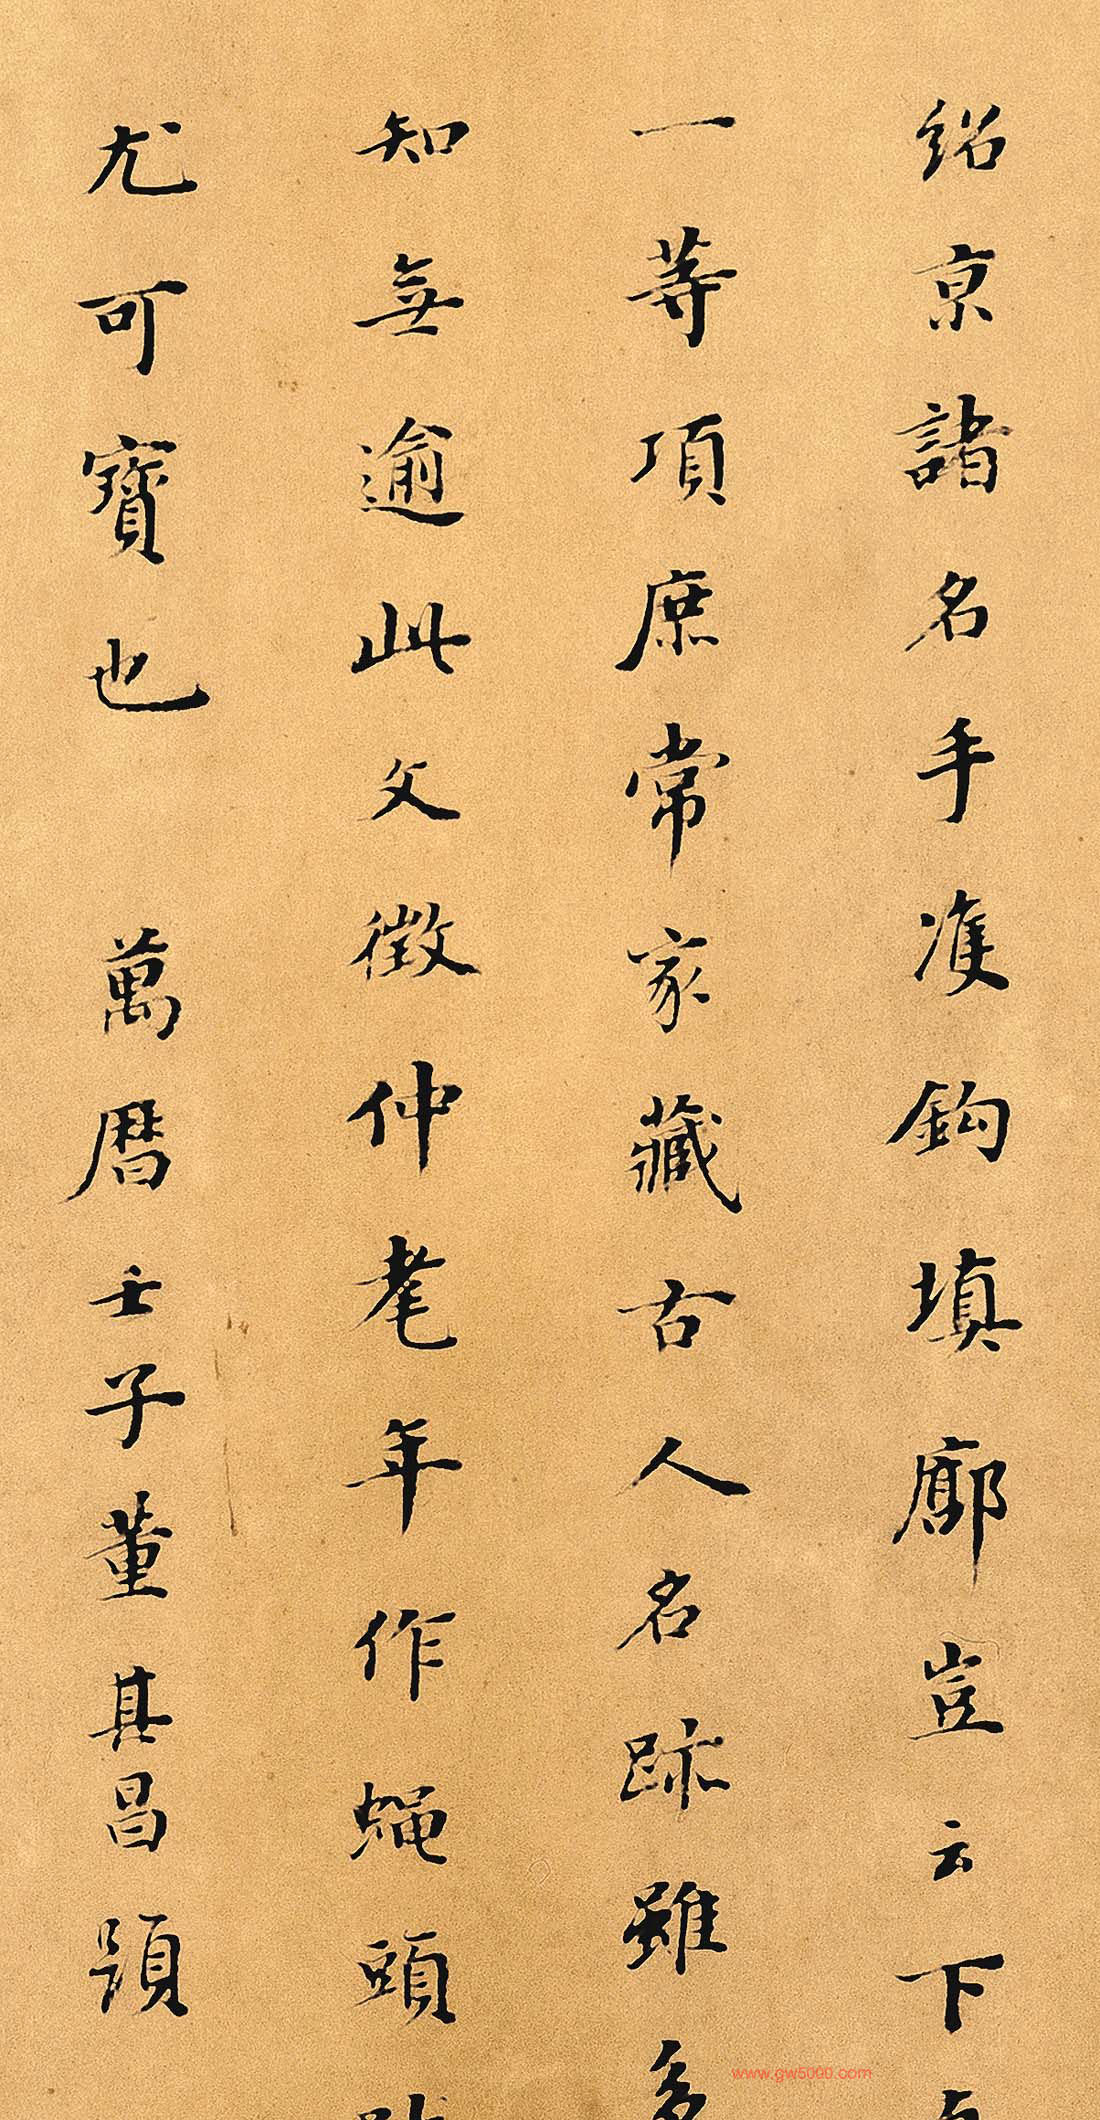 紹京諸名手準鈎填廓豈云下
一等項庶常家藏古人名跡雖多
知無逾此文徵仲耄年作蝇頭
尤可寶也 萬曆壬子董其昌題
www.gw5000.com